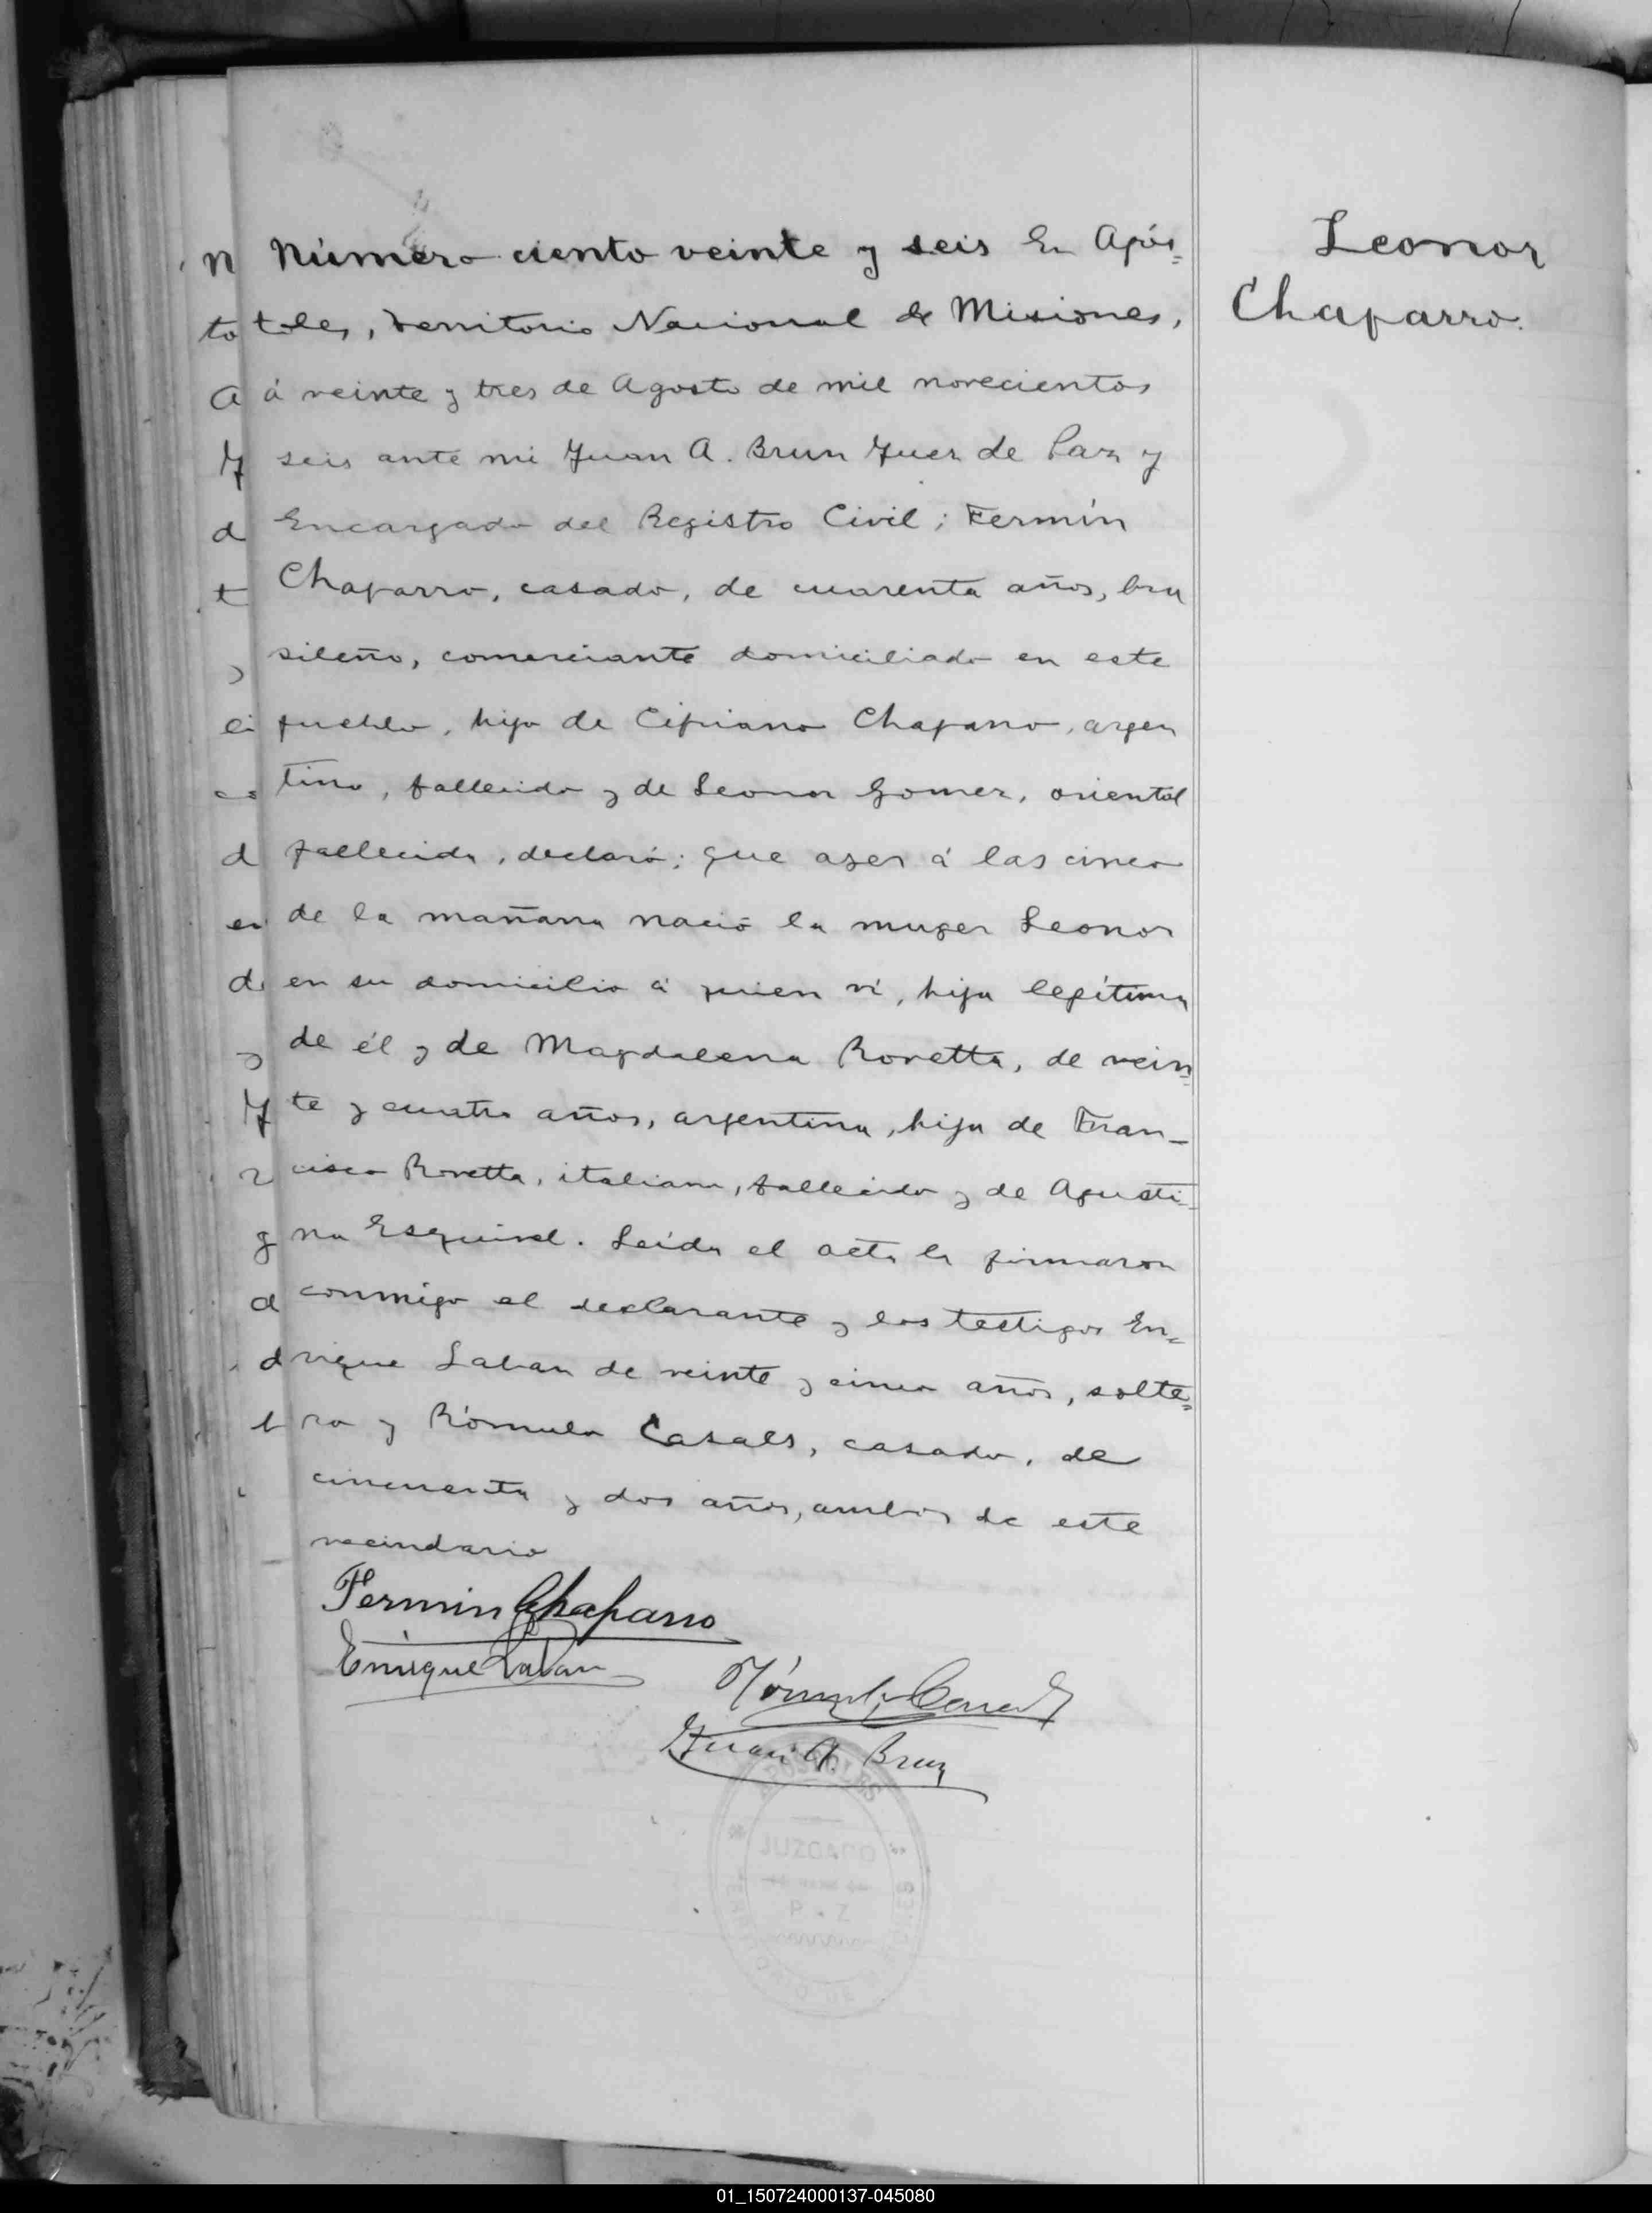 Número ciento veinte y seis En Após=
Leonor
toles, territorio Nacional de Misiones,
Chaparro.
á veinte y tres de Agosto de mil novecientos
seis ante mi Juan A. Brun Juez de Paz y
Encargado del Registro Civil; Fermín
Chaparro, casado, de cuarenta años, bra
sileño, comerciante domiciliado en este
pueblo, hijo de Cipriano Chaparro, argen
tino, fallecido y de Leonor Gomez, oriental
fallecida, declaró; que ayer á las cinco
de la mañana nació la muger Leonor
en su domicilio á quien ví, hija legítima
de él y de Magdalena Rovetta, de vein=
te y cuatro años, argentina, hija de Fran-
cisco Rovetta, italiano, fallecido y de Agusti=
na Esquivel. Leida el acta la firmaron
conmigo el declarante y los testigos En=
rique Laban de veinte y cinco años, solte=
ro y Rómulo Casals, casado, de
cincuenta y dos años, ambos de este
vecindario
Fermin Chaparro
Enrique Laban
Rómulo
Juan A. Brun
APOSTOLES
JUZGADO
P Z
01_150724000137-045080